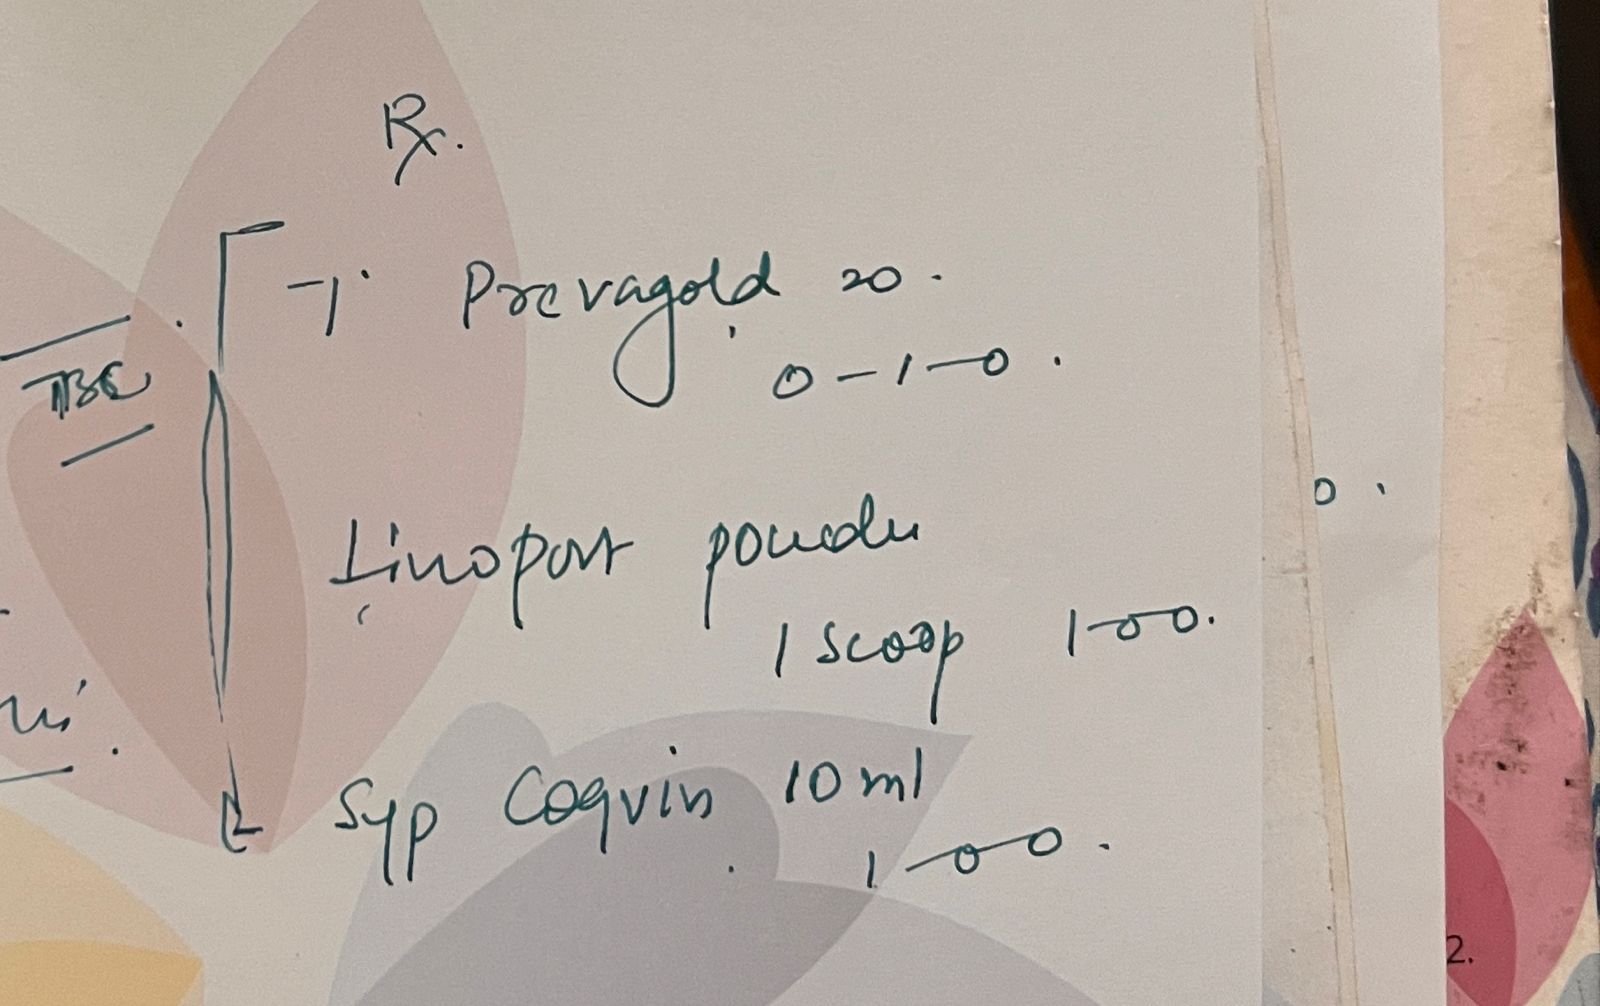 Rx.
T. Prevagold 20.
0-1-0.
TBC
0.
Linoport powder
1 scoop 1-0-0.
Syp Coqvin 10 ml
1-0-0.
2.